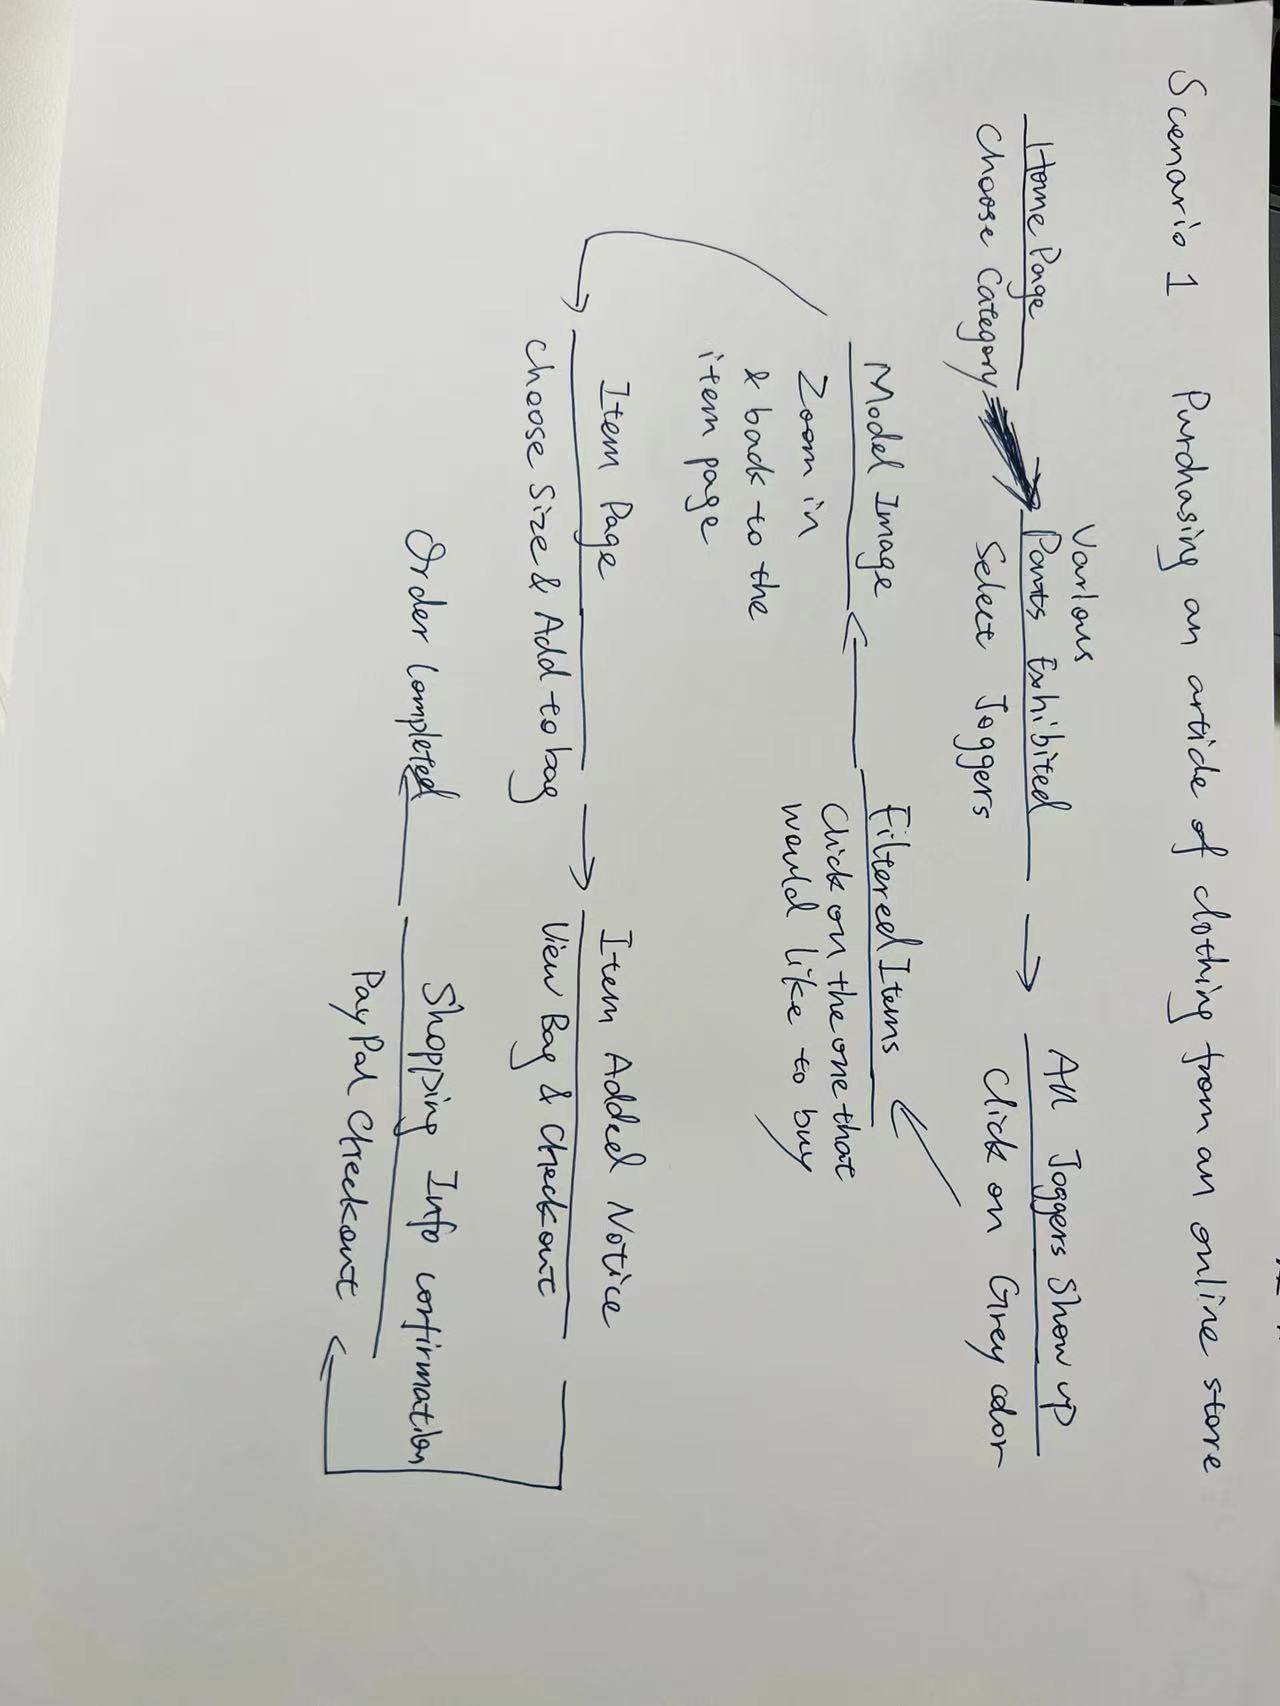 Scenario 1 Purchasing an article of clothing from an online store
Home Page
Choose Category
Various
Pants Exhibited
Select Joggers
All Joggers Show up
Click on Grey color
Filtered Items
Click on the one that
would like to buy
Model Image
Zoom in
& back to the
item page
Item Page
Choose Size & Add to bag
Item Added Notice
View Bag & Checkout
Shopping Info confirmation
PayPal Checkout
Order Completed